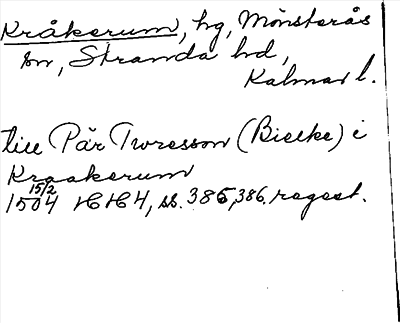 Kråkerum, hg, Mönsterås
sn, Stranda hd,
Kalmar l.
till Pär Turesson (Bielke) i
Kraakerum
15/2
1504 HH 4, ss. 385, 386. regest.